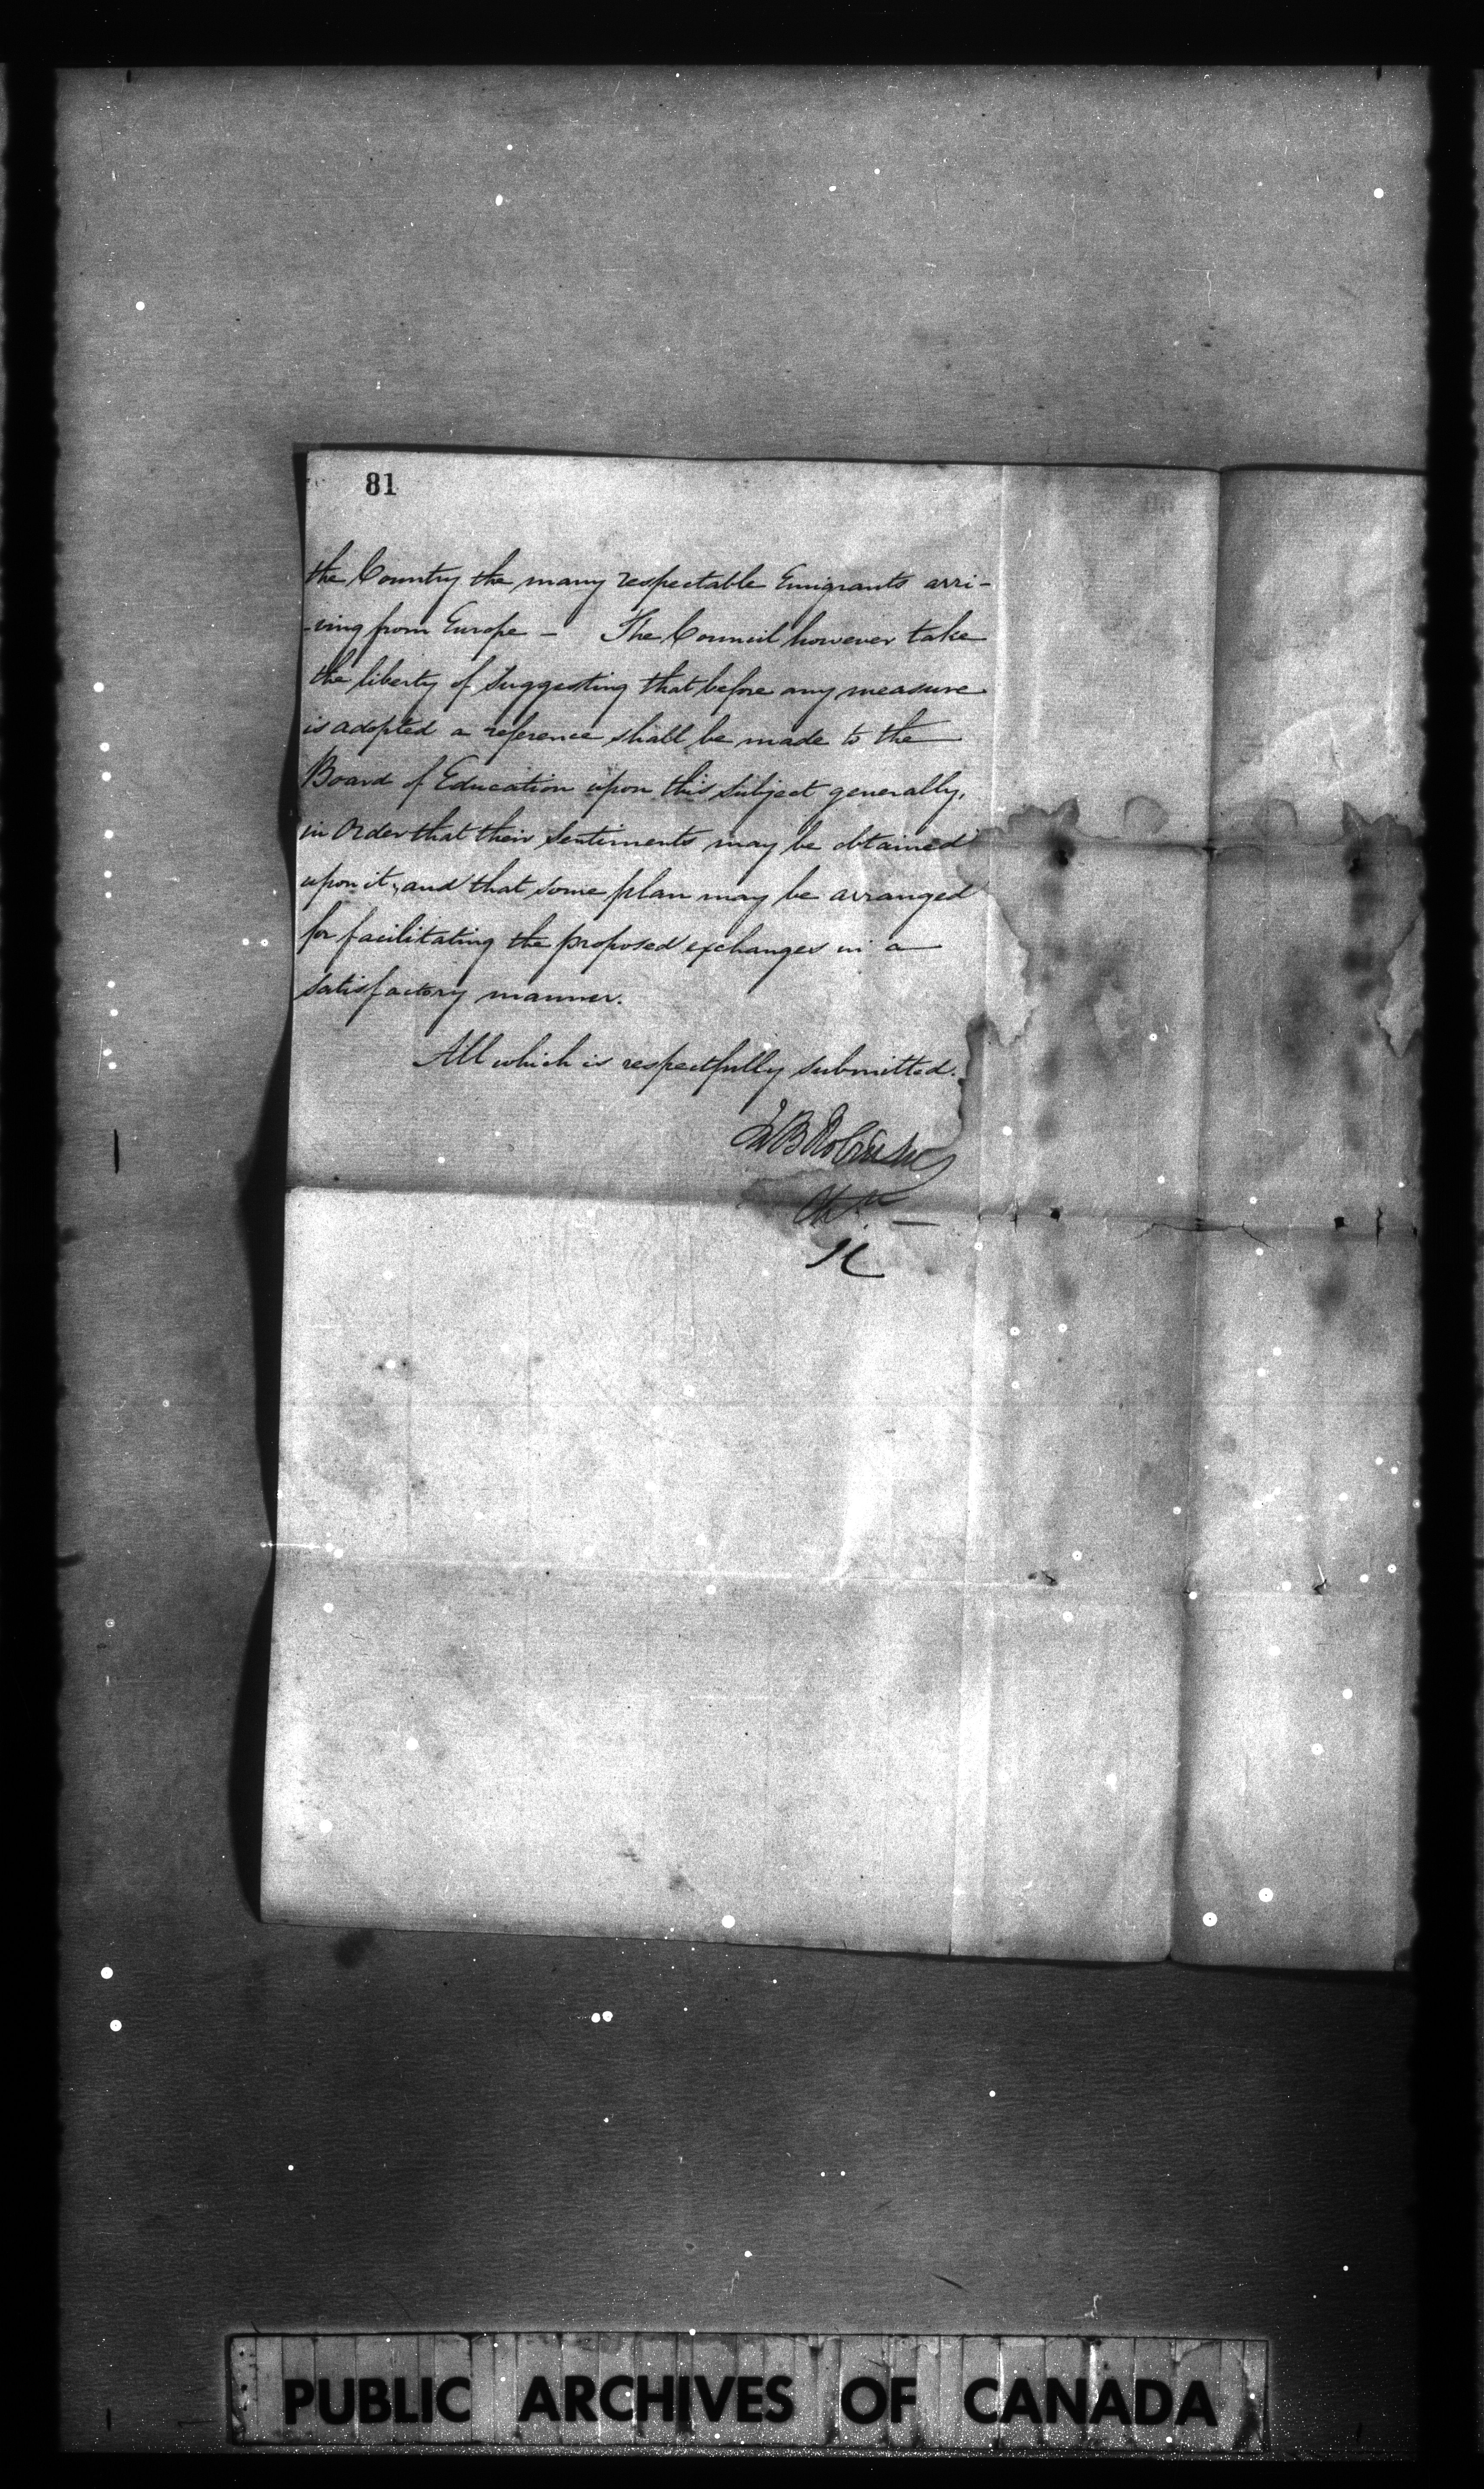 81
the Country the many respectable Emigrants arri-
-ving from Europe - The Council however take
the liberty of Suggesting that before any measure
is adopted a reference shall be made to the
Board of Education upon this Subject generally,
in Order that their Sentiments may be obtained
upon it, and that some plan may be arranged
for facilitating the proposed exchanges in a
satisfactory manner.
All which is respectfully submitted.
JnB Robinson
PUBLIC ARCHIVES OF CANADA